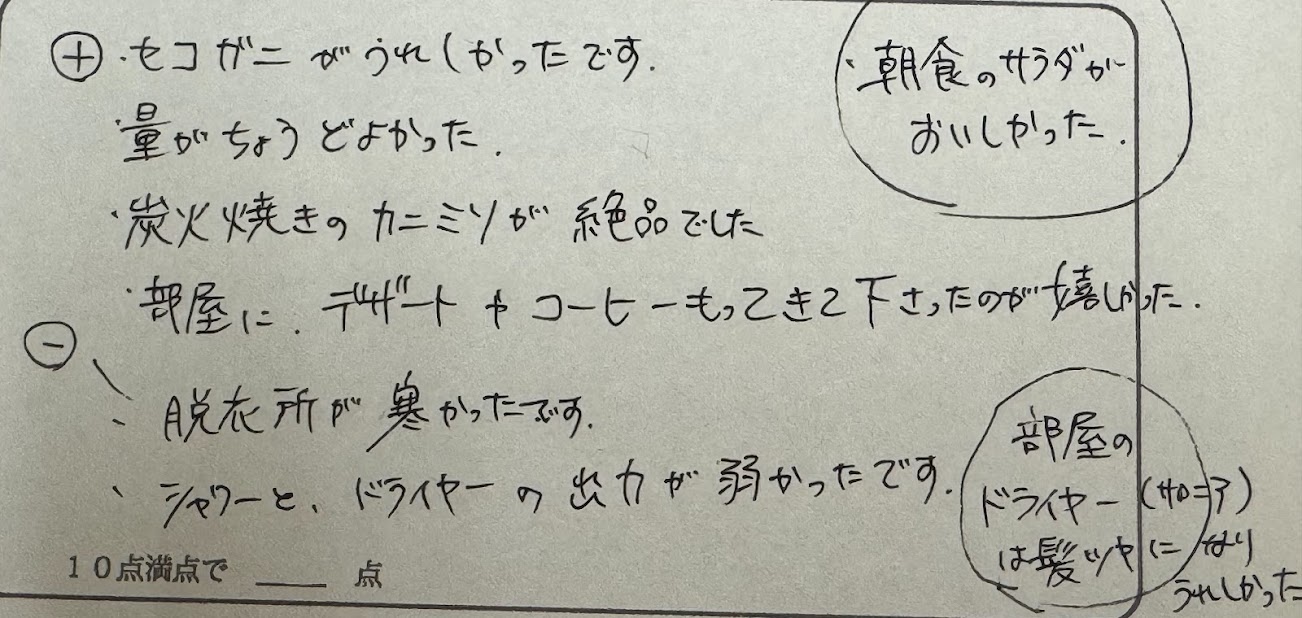 ⊕ ・セコガニがうれしかったです.
・朝食のサラダが
おいしかった.
・量がちょうどよかった.
・炭火焼きのカニミソが絶品でした
・部屋に、デザートやコーヒーもってきて下さったのが嬉しかった.
⊖
、脱衣所が寒かったです.
、シャワーと、ドライヤーの出力が弱かったです.
部屋の
ドライヤー(サロニア)
は髪ツヤになり
うれしかった
10点満点で ___ 点